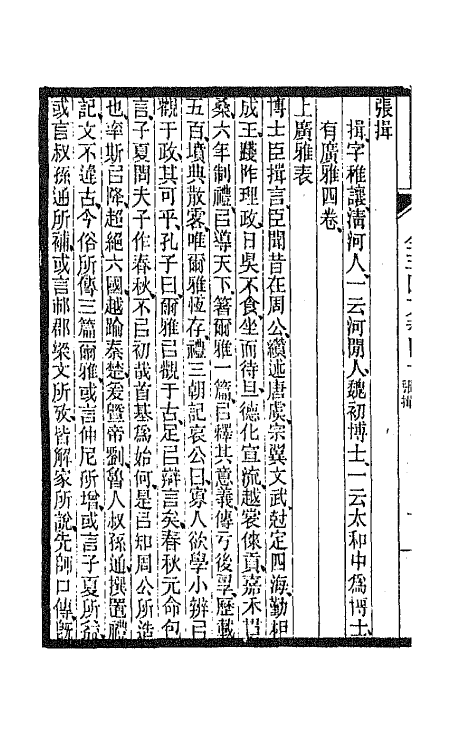 張揖
揖字稚讓淸河人一云河閒人魏初博士一云太和中爲博士
有廣雅四卷
上廣雅表
博士臣揖言臣聞昔在周公纘述唐虞宗翼文武尅定四海勤相
成王踐阼理政日昃不食坐而待旦德化宣流越裳倈貢嘉禾貫
桑六年制禮㠯導天下著爾雅一篇㠯釋其意義傳亏後孠歷載
五百墳典散零唯爾雅恆存禮三朝記哀公曰寡人欲學小辨㠯
觀于政其可乎孔子曰爾雅㠯觀于古足㠯辯言矣春秋元命包
言子夏問夫子作春秋不㠯初哉首基爲始何是㠯知周公所造
也率斯㠯降超絕六國越踰秦楚爰曁帝劉魯人叔孫通撰置禮
記文不違古今俗所傳三篇爾雅或言仲尼所增或言子夏所益
或言叔孫通所補或言郝郡梁文所攷皆解家所說先師口傳旣
張揖